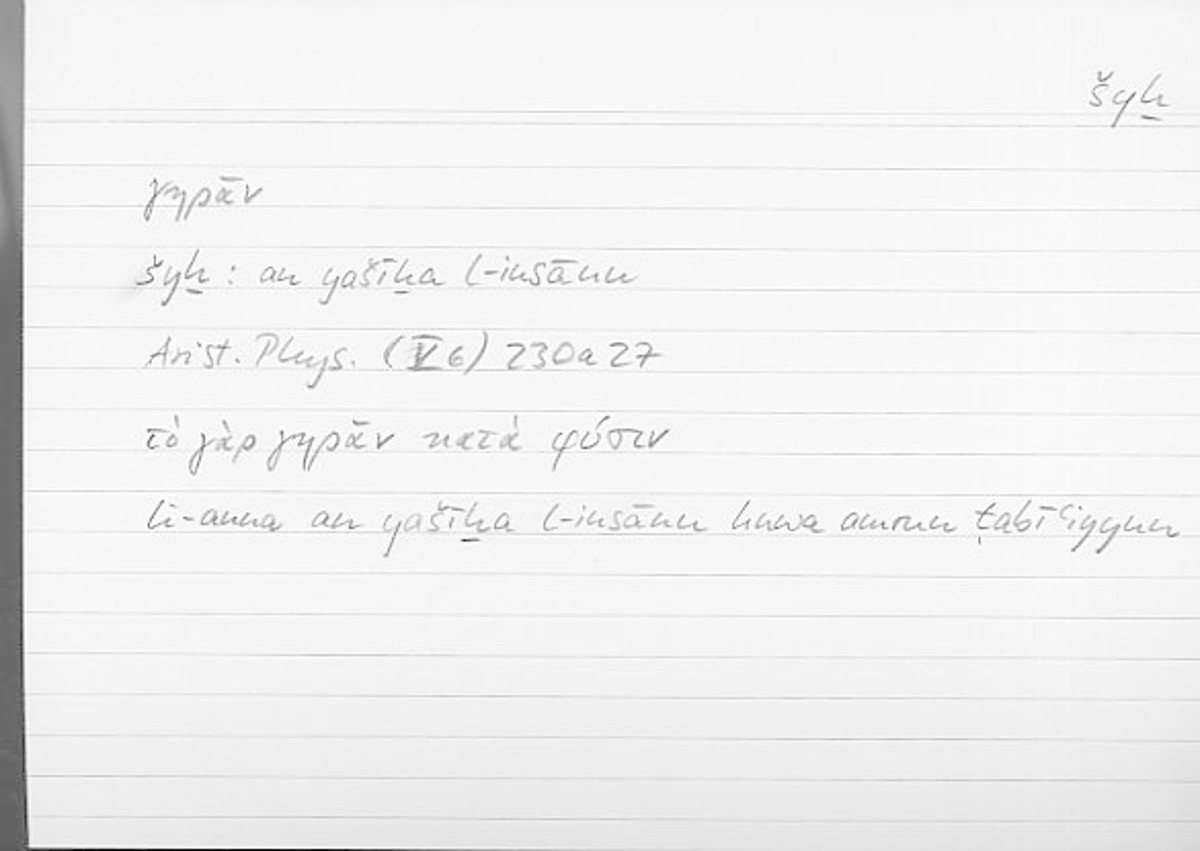 šyḫ
γηρᾶν
šyḫ : an yašīḫa l-insānu
Arist. Phys. (V 6) 230a27
τὸ γὰρ γηρᾶν κατὰ φύσιν
li-anna an yašīḫa l-insānu huwa amrun ṭabīʿiyyun